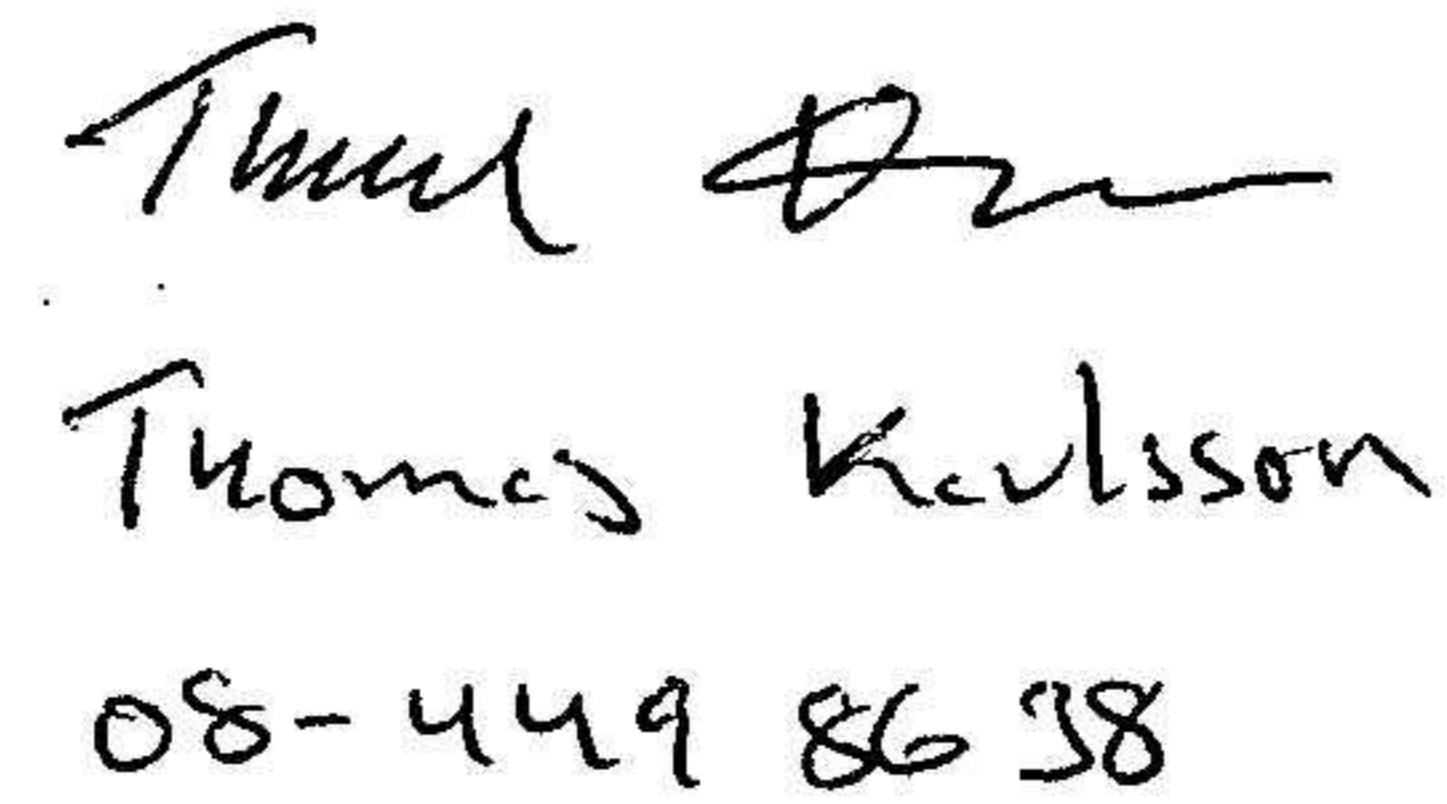 Thomas Karlsson
08-449 86 38